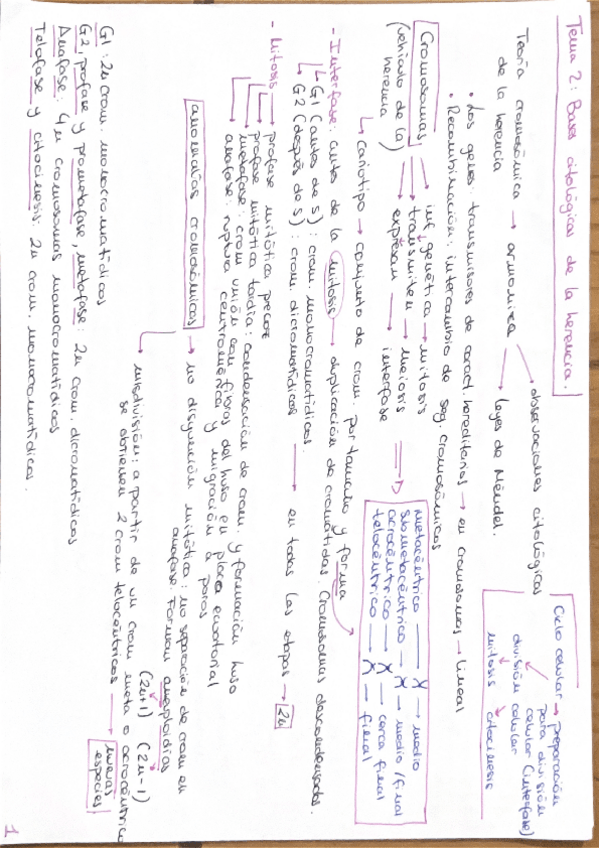 Tema 2: Bases citológicas de la herencia.
Teoría cromosómica → armoniza → observaciones citológicas
de la herencia → leyes de Méndel.
Ciclo celular → preparación
para división
celular (interfase)
división celular
mitosis citocinesis
• Los genes: transmisores de caract. hereditarios → en cromosomas → lineal
• Recombinación: intercambio de seg. cromosómicos
Cromosomas → inf. genética → mitosis
(vehículo de la → transmiten → meiosis
herencia) → expresan → interfase
metacéntrico — X → medio
submetacéntrico → X → medio/final
acrocéntrico — X → cerca final
telocéntrico — X → final
↳ cariotipo → conjunto de crom. por tamaño y forma
- Interfase: antes de la mitosis → duplicación de cromátidas. Cromosomas descondensados.
↳ G1 (antes de S): crom. monocromatídicos.
↳ G2 (después de S): crom. dicromatídicos → en todas las etapas → 2n
- Mitosis → profase mitótica precoz
→ profase mitótica tardía: condensación de crom. y formación huso
→ metafase: crom unión con fibras del huso en placa ecuatorial
→ anafase: ruptura centromérica y migración a polos
anomalías cromosómicas → no disyunción mitótica: no separación de crom en
anafase. Forman aneuploidías
(2n+1) (2n-1)
→ misdivisión: a partir de un crom meta o acrocéntrico
se obtienen 2 crom telocéntricos → nuevas
especies
G1: 2n crom. monocromatídicos
G2, profase y prometafase, metafase: 2n crom. dicromatídicos
Anafase: 4n cromosomas monocromatídicos
Telofase y citocinesis: 2n crom. monocromatídicos.
1